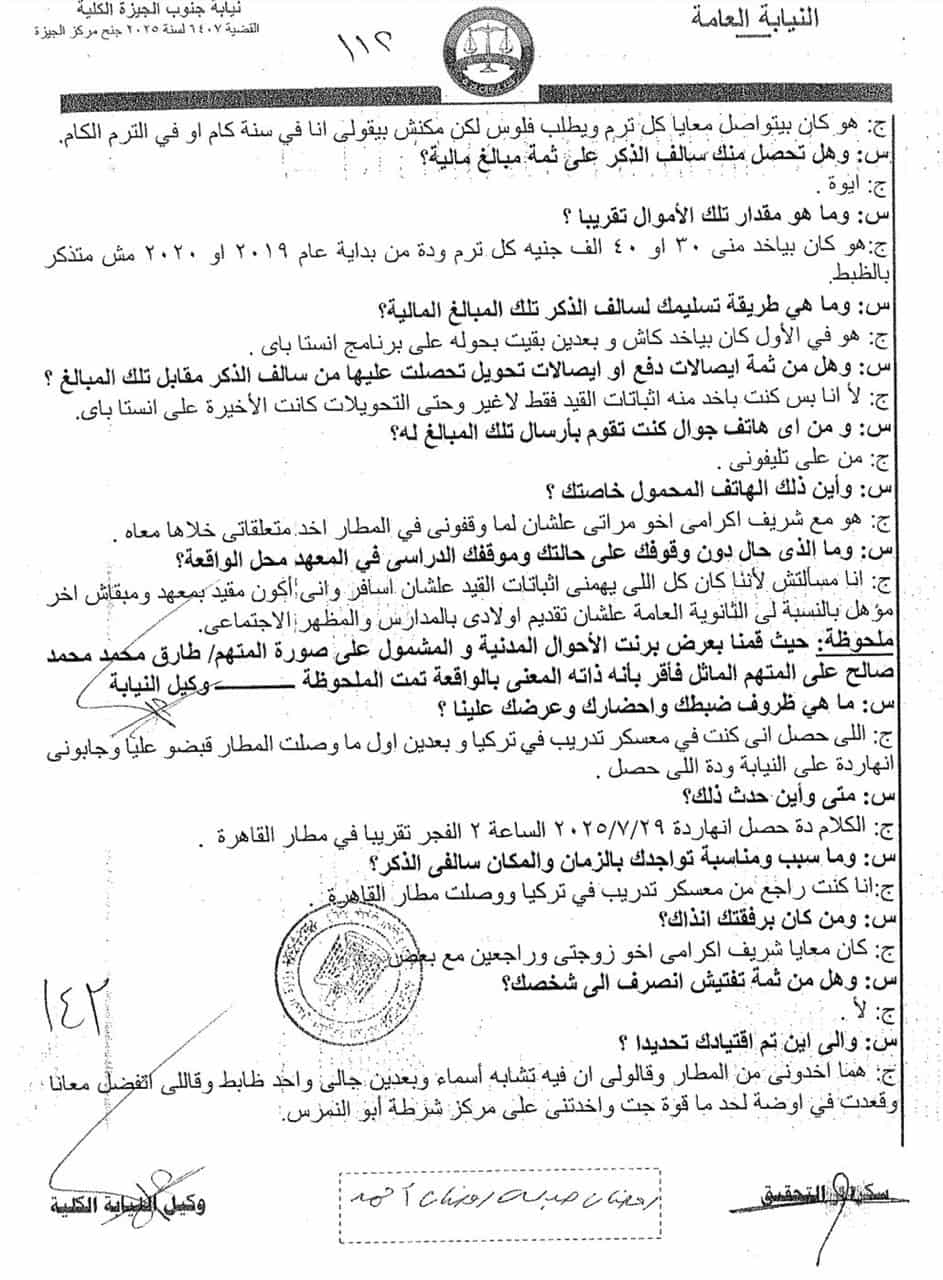 النيابة العامة
نيابة جنوب الجيزة الكلية
القضية ٦٤٠٧ لسنة ٢٠٢٥ جنح مركز الجيزة
١١٢
ج: هو كان بيتواصل معايا كل ترم ويطلب فلوس لكن مكنش بيقولى انا في سنة كام او في الترم الكام.
س: وهل تحصل منك سالف الذكر على ثمة مبالغ مالية؟
ج: ايوة .
س: وما هو مقدار تلك الأموال تقريبا ؟
ج:هو كان بياخد منى ٣٠ او ٤٠ الف جنيه كل ترم ودة من بداية عام ٢٠١٩ او ٢٠٢٠ مش متذكر
بالظبط.
س: وما هي طريقة تسليمك لسالف الذكر تلك المبالغ المالية؟
ج: هو في الأول كان بياخد كاش و بعدين بقيت بحوله على برنامج انستا باى .
س: وهل من ثمة ايصالات دفع او ايصالات تحويل تحصلت عليها من سالف الذكر مقابل تلك المبالغ ؟
ج: لأ انا بس كنت باخد منه اثباتات القيد فقط لاغير وحتى التحويلات كانت الأخيرة على انستا باى.
س: و من اى هاتف جوال كنت تقوم بأرسال تلك المبالغ له؟
ج: من على تليفونى .
س: وأين ذلك الهاتف المحمول خاصتك ؟
ج: هو مع شريف اكرامى اخو مراتى علشان لما وقفونى في المطار اخد متعلقاتى خلاها معاه .
س: وما الذى حال دون وقوفك على حالتك وموقفك الدراسى في المعهد محل الواقعة؟
ج: انا مسألتش لأننا كان كل اللى يهمنى اثباتات القيد علشان اسافر وانى أكون مقيد بمعهد ومبقاش اخر
مؤهل بالنسبة لى الثانوية العامة علشان تقديم اولادى بالمدارس والمظهر الاجتماعى.
ملحوظة: حيث قمنا بعرض برنت الأحوال المدنية و المشمول على صورة المتهم/ طارق محمد محمد
صالح على المتهم الماثل فأقر بأنه ذاته المعنى بالواقعة تمت الملحوظة ـــــــــ وكيل النيابة
س: ما هي ظروف ضبطك واحضارك وعرضك علينا ؟
ج: اللى حصل انى كنت في معسكر تدريب في تركيا و بعدين اول ما وصلت المطار قبضو عليا وجابونى
انهاردة على النيابة ودة اللى حصل .
س: متى وأين حدث ذلك؟
ج: الكلام دة حصل انهاردة ٢٠٢٥/٧/٢٩ الساعة ٢ الفجر تقريبا في مطار القاهرة .
س: وما سبب ومناسبة تواجدك بالزمان والمكان سالفى الذكر؟
ج:انا كنت راجع من معسكر تدريب في تركيا ووصلت مطار القاهرة .
س: ومن كان برفقتك انذاك؟
ج: كان معايا شريف اكرامى اخو زوجتى وراجعين مع بعض
س: وهل من ثمة تفتيش انصرف الى شخصك؟
ج: لأ .
١٤٢
س: والى اين تم اقتيادك تحديدا ؟
ج: هما اخدونى من المطار وقالولى ان فيه تشابه أسماء وبعدين جالى واحد ظابط وقاللى اتفضل معانا
وقعدت في اوضة لحد ما قوة جت واخدتنى على مركز شرطة أبو النمرس.
سكرتير التحقيق
رمضان صبحى رمضان أحمد
وكيل النيابة الكلية